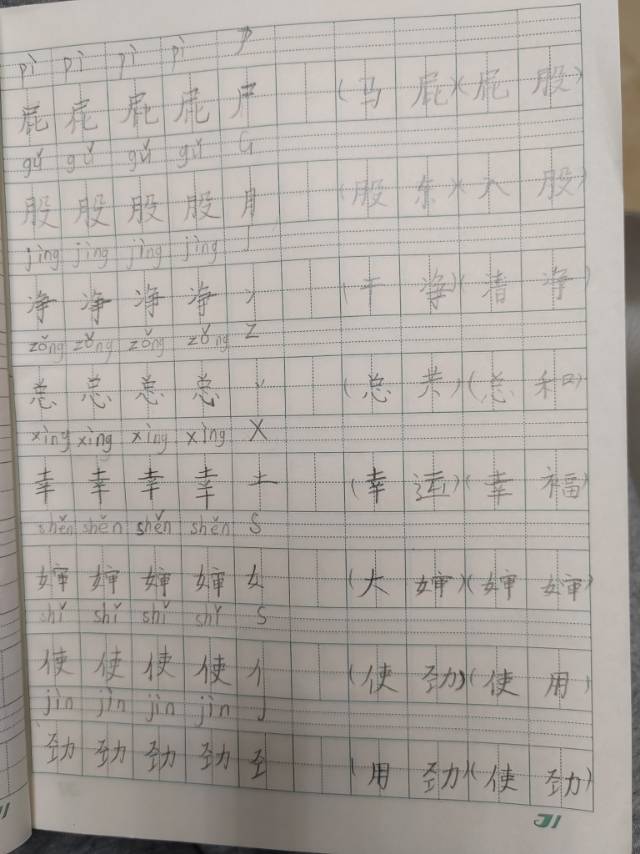 pì pì pì pì p
屁 屁 屁 屁 尸 (马屁)(屁股)
gǔ gǔ gǔ gǔ G
股 股 股 股 月 (股东)(入股)
jìng jìng jìng jìng J
净 净 净 净 冫 (干净)(清净)
zǒng zǒng zǒng zǒng Z
总 总 总 总 丷 (总共)(总和)
xìng xìng xìng xìng X
幸 幸 幸 幸 土 (幸运)(幸福)
shěn shěn shěn shěn S
婶 婶 婶 婶 女 (大婶)(婶婶)
shǐ shǐ shǐ shǐ S
使 使 使 使 亻 (使劲)(使用)
jìn jìn jìn jìn J
劲 劲 劲 劲 (用劲)(使劲)